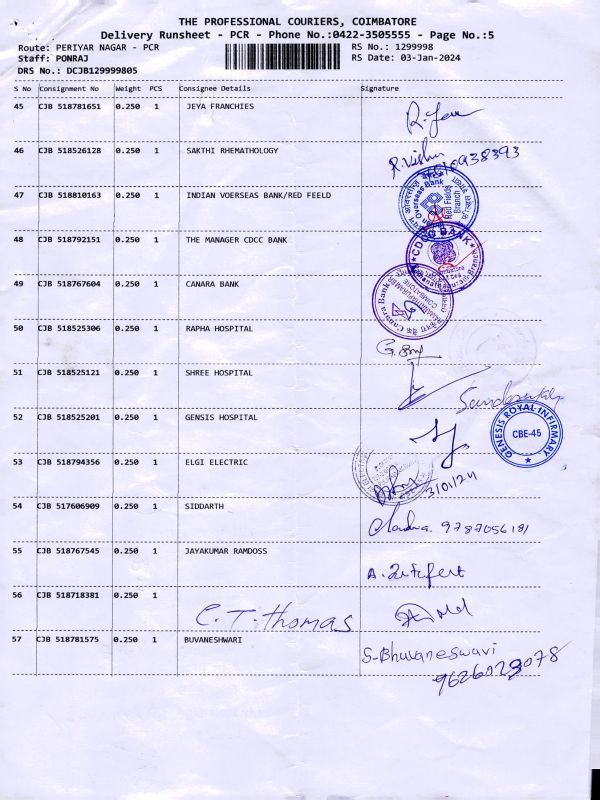 THE PROFESSIONAL COURIERS, COIMBATORE
Delivery Runsheet - PCR - Phone No.:0422-3505555 - Page No.:5
Route: PERIYAR NAGAR - PCR RS No.: 1299998
Staff: PONRAJ RS Date: 03-Jan-2024
DRS No.: DCJB129999805
S No Consignment No Weight PCS Consignee Details Signature
45 CJB 518781651 0.250 1 JEYA FRANCHIES
46 CJB 518526128 0.250 1 SAKTHI RHEMATHOLOGY
R.Vishu
47 CJB 518810163 0.250 1 INDIAN VOERSEAS BANK/RED FEELD
Overseas Bank
Red Fields
Branch
48 CJB 518792151 0.250 1 THE MANAGER CDCC BANK
CDCC BANK
49 CJB 518767604 0.250 1 CANARA BANK
Canara Bank
COIMBATORE
50 CJB 518525306 0.250 1 RAPHA HOSPITAL
51 CJB 518525121 0.250 1 SHREE HOSPITAL
52 CJB 518525201 0.250 1 GENSIS HOSPITAL
GENESIS ROYAL INFIRMARY
CBE-45
53 CJB 518794356 0.250 1 ELGI ELECTRIC
3/01/24
54 CJB 517606909 0.250 1 SIDDARTH
Chandra. 9787056181
55 CJB 518767545 0.250 1 JAYAKUMAR RAMDOSS
56 CJB 518718381 0.250 1 C.T.thomas
57 CJB 518781575 0.250 1 BUVANESHWARI
S-Bhuvaneswavi
9626029078